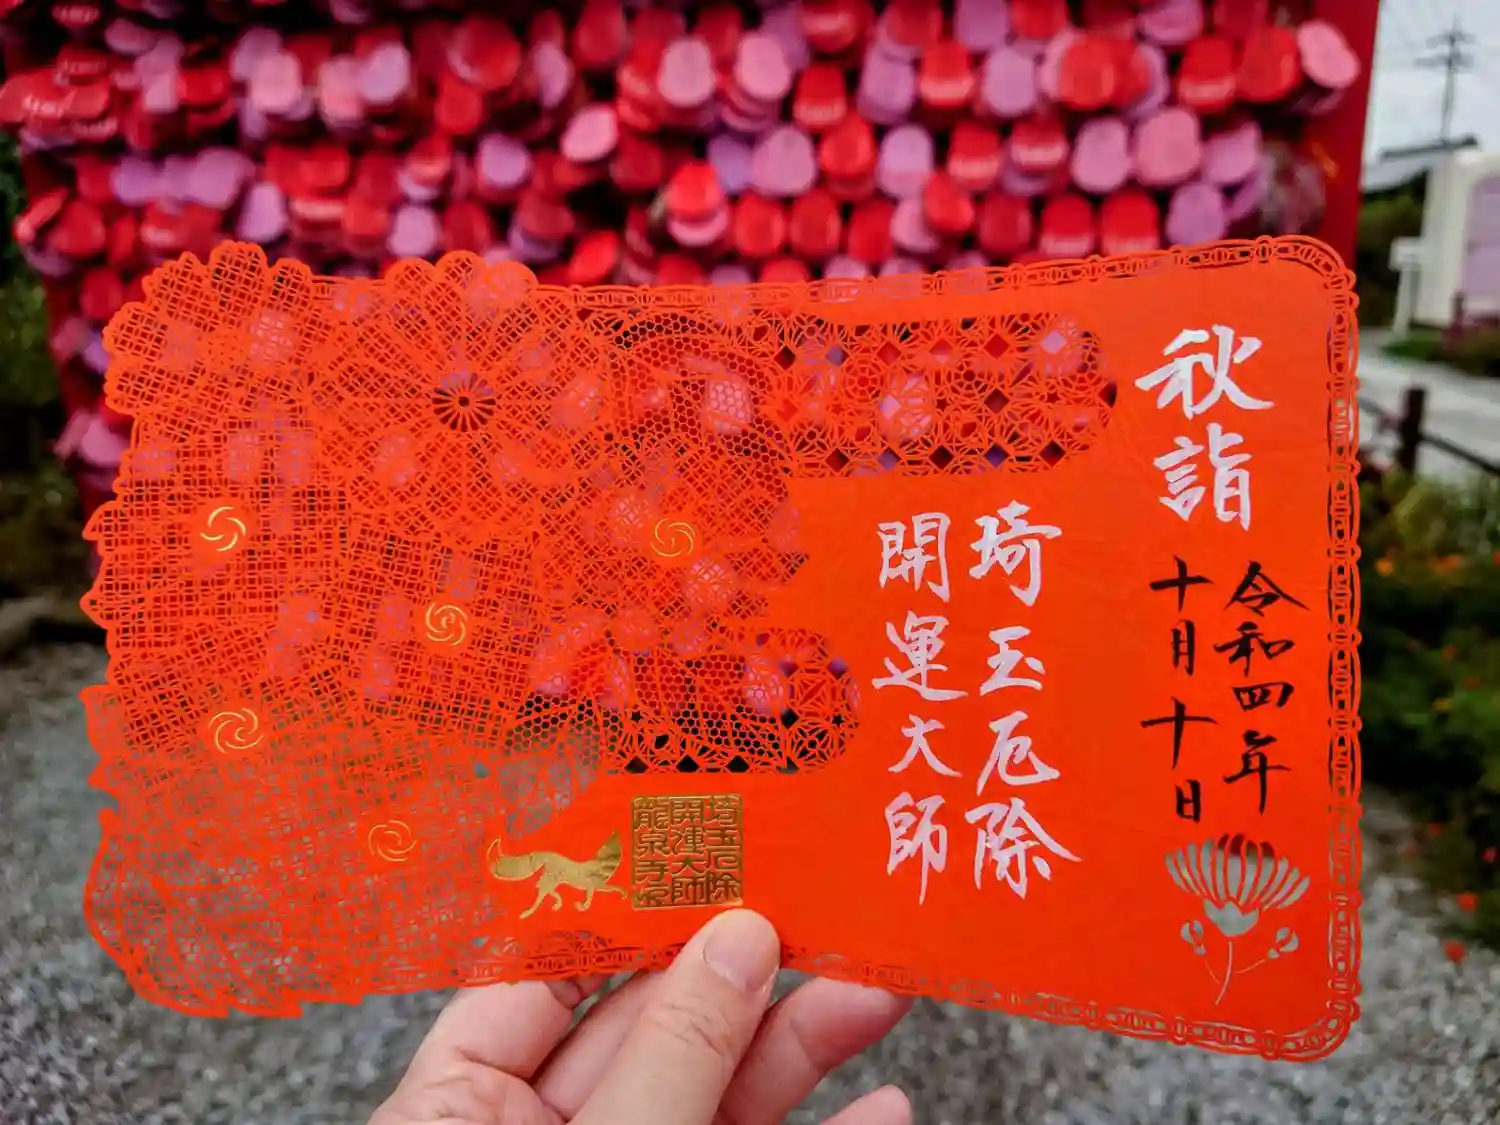 秋詣
令和四年
十月十日
埼玉厄除
開運大師
埼玉厄除
開運大師
龍泉寺印